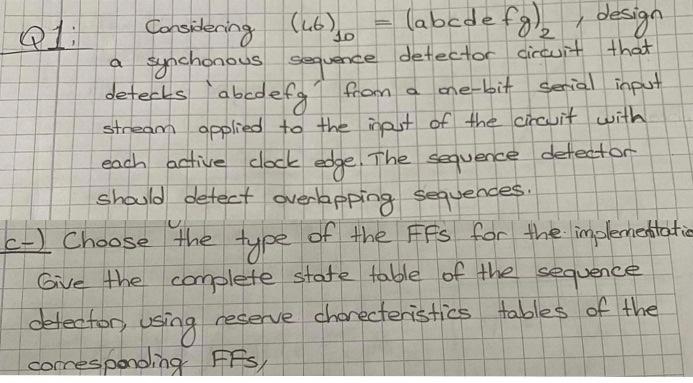 Q1: Considering (46)10 = (abcdefg)2, design
a synchonous sequence detector circuit that
detects 'abcdefg' from a one-bit serial input
stream applied to the input of the circuit with
each active clock edge. The sequence detector
should detect overlapping sequences.
c-) Choose the type of the FFs for the implementatio
Give the complete state table of the sequence
detector, using reserve charecteristics tables of the
corresponding FFs,